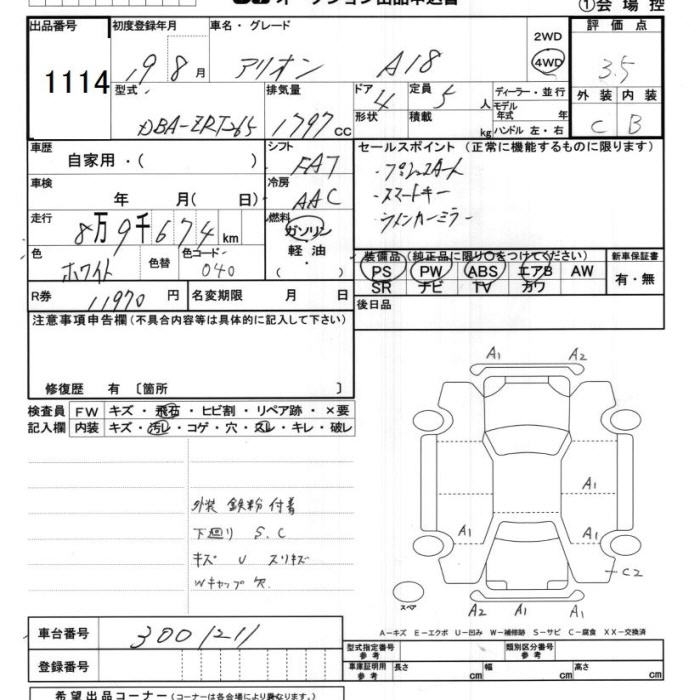 オークション出品申込書 ①会場控
出品番号 初度登録年月 車名・グレード 2WD 評価点
1114 19 8月 アリオン A18 4WD 3.5
型式 排気量 ドア 定員 ディーラー・並行 外装 内装
DBA-ZRT265 1797cc 4 5人 モデル年式 年 C B
形状 積載 kg ハンドル 左・右
車歴 シフト セールスポイント(正常に機能するものに限ります)
自家用・( ) FAT ・プッシュスタート
車検 冷房 ・スマートキー
年 月( 日) AAC ・ウインカーミラー
走行 燃料
8万9千674km ガソリン
色 色替 色コード 軽油 装備品(純正品に限り○をつけてください) 新車保証書
ホワイト 040 ・ PS PW ABS エアB AW 有・無
( ) SR ナビ TV カワ
R券 11970円 名変期限 月 日 後日品
注意事項申告欄(不具合内容等は具体的に記入して下さい)
修復歴 有〔箇所 〕
検査員 FW キズ・飛石・ヒビ割・リペア跡・×要
記入欄 内装 キズ・汚レ・コゲ・穴・スレ・キレ・破レ
A1 A2
A1
A1 A1
C2
スペア A2 A1 A1
外装 鉄粉付着
下廻り S.C
キズ U スリキズ
Wキャップ欠
A-キズ E-エクボ U-凹み W-補修跡 S-サビ C-腐食 XX-交換済
車台番号 3001211
型式指定番号 参考 類別区分番号 参考
登録番号 車庫証明用 参考 長さ cm 幅 cm 高さ cm
希望出品コーナー(コーナーは各会場により異なります。)